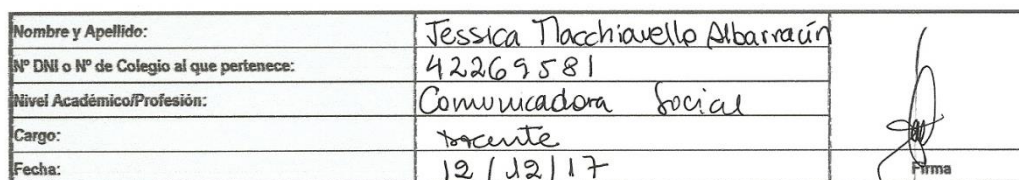 Nombre y Apellido: Jessica Macchiavello Albarracín
Nº DNI o Nº de Colegio al que pertenece: 42269581
Nivel Académico/Profesión: Comunicadora Social
Cargo: Docente
Fecha: 12/12/17
Firma